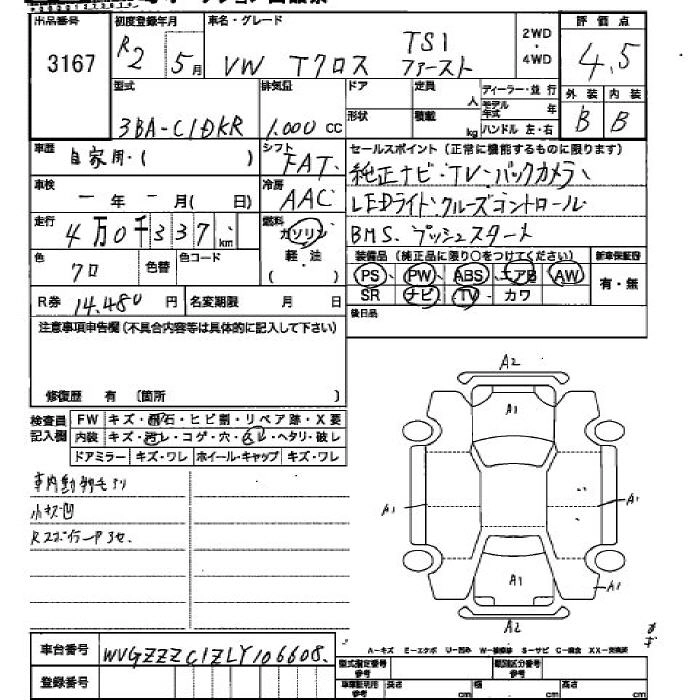 出品番号 初度登録年月 車名・グレード 2WD 評価点
3167 R2 5月 VW Tクロス TSI ファースト ・ 4WD 4.5
型式 排気量 ドア 定員 人 ディーラー・並行 外装 内装
3BA-C1DKR 1.000 cc 形状 積載 kg モデル年式 年 ハンドル 左・右 B B
車歴 自家用・( ) シフト FAT セールスポイント(正常に機能するものに限ります)
車検 ー年ー月( 日) 冷房 AAC 純正ナビ・TV・バックカメラ、
走行 4万0千337km 燃料 ガソリン 軽・油 ( ) LEDライト・クルーズコントロール
BMS. プッシュスタート
色 クロ 色替 色コード 装備品(純正品に限り○をつけてください) 新車保証書
PS PW ABS エアB AW 有・無
R券 14.480円 名変期限 月 日 SR ナビ TV カワ
注意事項申告欄(不具合内容等は具体的に記入して下さい) 後日品
修復歴 有 〔箇所 〕
検査員記入欄 FW キズ・飛石・ヒビ割・リペア跡・X要
内装 キズ・汚レ・コゲ・穴・スレ・ヘタリ・破レ
ドアミラー キズ・ワレ ホイール・キャップ キズ・ワレ
車内動物毛アリ
小キズ凹
A2
A1
A1 A1
A1 A1
A2
車台番号 WVGZZZC1ZLY106608.
A-キズ E-エクボ U-凹み W-補修跡 S-サビ C-腐食 XX-交換済
登録番号 型式指定番号 参考 類別区分番号 参考
車庫証明用 参考 長さ cm 幅 cm 高さ cm